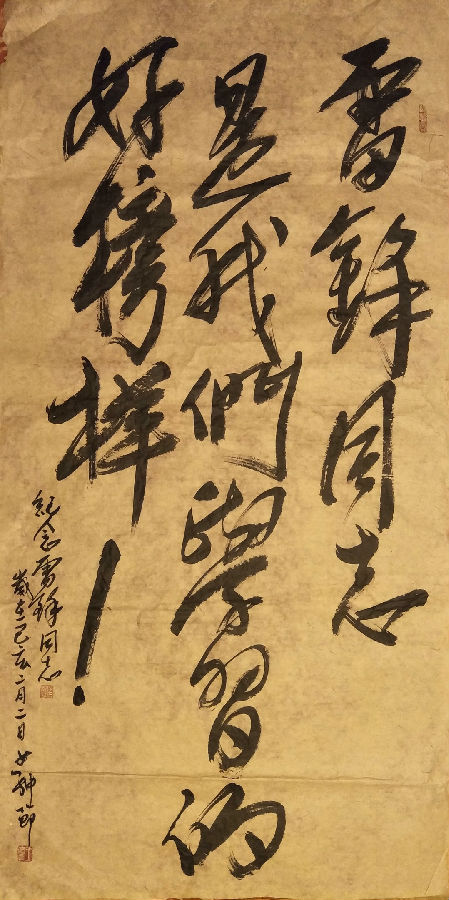 雷鋒同志
是我們學習的
好榜樣！
紀念雷鋒同志
歲在己亥二月二日